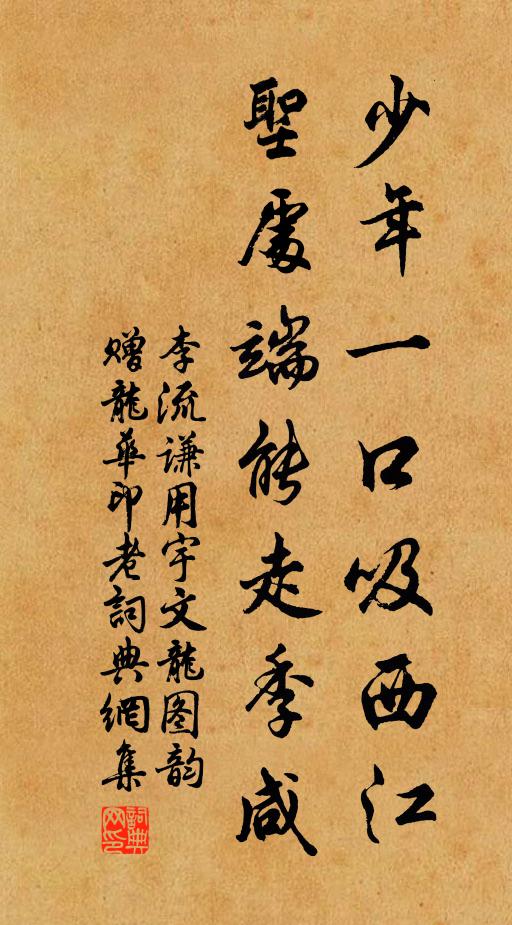 少年一口吸西江
聖處端能走季咸
李流謙用宇文龍图韵
赠龍華印老詞典網集
詞典网印